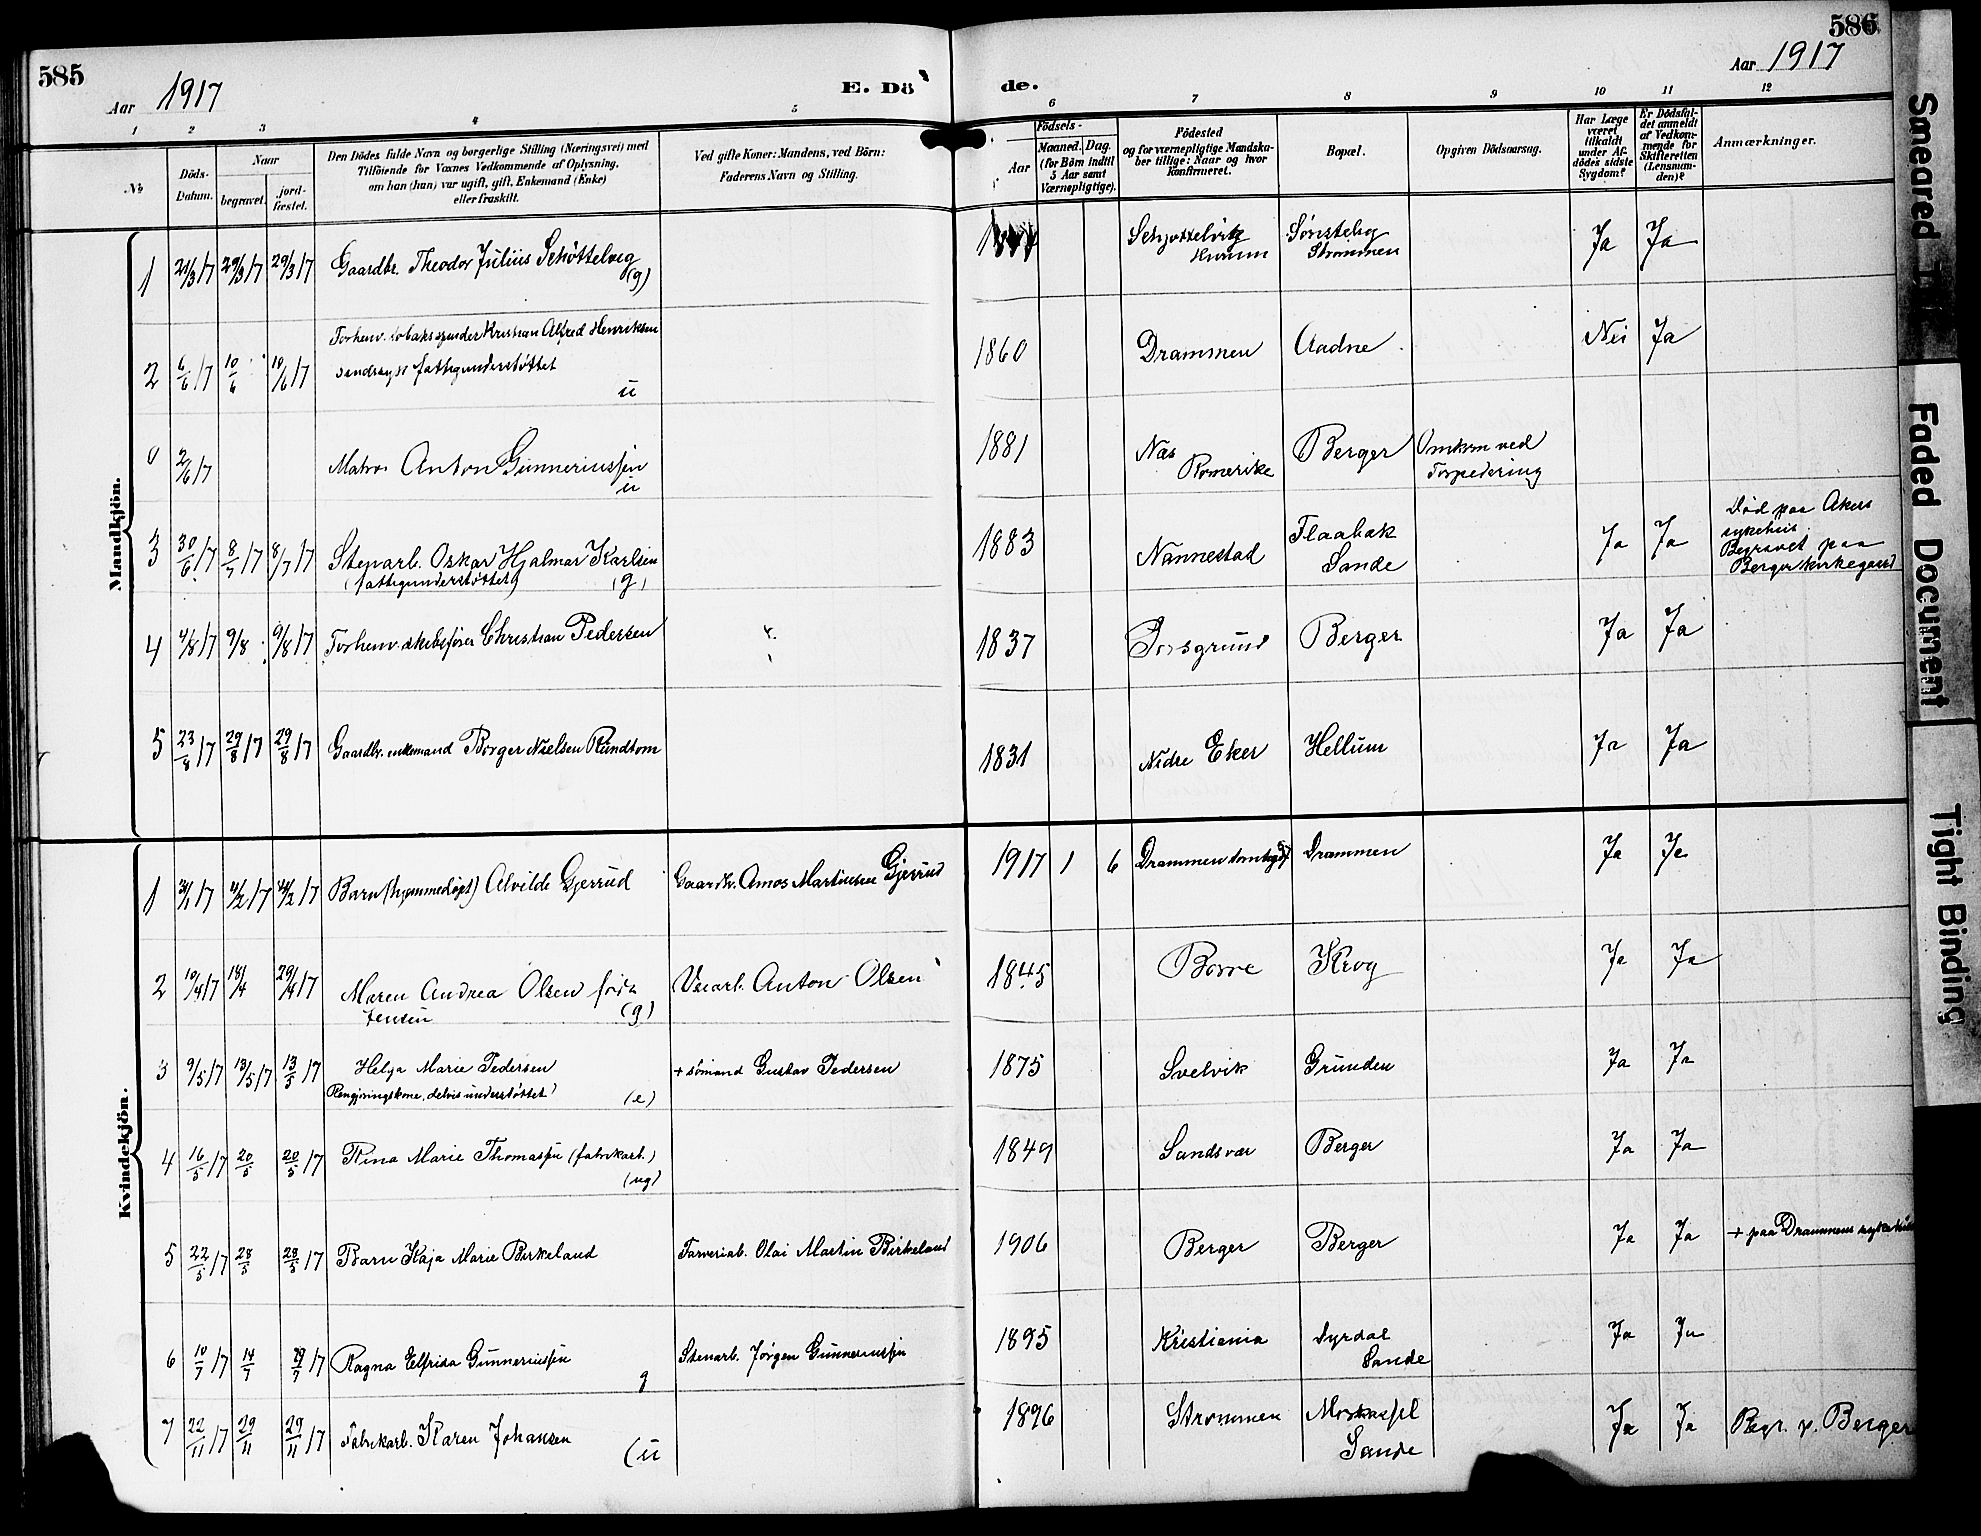 585
Aar 1917
E. Dö
de.
586
Aar 1917
Smeared Ink
Faded Document
Tight Binding
1 2 3 4 5 6 7 8 9 10 11 12
No
Döds-Datum.
Naar
begravet.
jord-fæstet.
Den Dödes fulde Navn og borgerlige Stilling (Næringsvei) med
Tilföiende for Voxnes Vedkommende af Oplysning,
om han (hun) var ugift, gift, Enkemand (Enke)
eller fraskilt.
Ved gifte Koner: Mandens, ved Börn:
Faderens Navn og Stilling.
Födsels-
Aar
Maaned. Dag.
(for Börn indtil
5 Aar samt
Værnepligtige).
Födested
og for værnepligtige Mandska-
ber tillige: Naar og hvor
konfirmeret.
Bopæl.
Opgiven Dödsaarsag.
Har Læge
været
tilkaldt
under Af-
dödes sidste
Sygdom?
Er Dödsfal-
det anmeldt
af Vedkom-
mende for
Skifteretten
(Lensman-
den)?
Anmærkninger.
Mandkjön.
1 29/3 17 29/3 17 Gaardbr. Theodor Julius Schøttelvig (g) Schjøttelvig Hurum Sønstebog Strømmen Ja Ja
2 6/6 17 10/6 10/6 17 Forhenv. tobaksspinder Kristian Alfred Henriksen
fattigunderstøttet u 1860 Drammen Aadne Nei Ja
0 2/6 17 Matros Anton Gunneriussen u 1881 Nes Romerike Berger Omkom ved Torpedering
3 30/6 17 8/7 17 8/7 17 Stenarb. Oskar Hjalmar Karlsen
(fattigunderstøttet) (g) 1883 Nannestad Flaabæk Sande Ja Ja Død paa Akers sykehus. Begravet paa Berger kirkegaard
4 4/8 17 9/8 9/8 17 Forhenv. skibsfører Christian Pedersen 1837 Porsgrund Berger Ja Ja
5 23/8 17 29/8 17 29/8 17 Gaardbr. enkemand Borger Nielsen Rundtom 1831 Nedre Eker Hellum Ja Ja
Kvindekjön.
1 31/1 17 4/2 17 17 Barn (hjemmedøpt) Alvilde Gjerrud Gaardbr. Amos Martinsen Gjerrud 1917 1 6 Drammen Drammen Ja Ja
2 10/4 17 18/4 29/4 17 Maren Andrea Olsen født
Jensen (g) Anton Olsen 1845 Borre Krog Ja Ja
3 9/5 17 13/5 17 13/5 17 Helga Marie Pedersen
Rengjøringskone, delvis understøttet (e) + sømand Gustav Pedersen 1875 Svelvik Grunden Ja Ja
4 16/5 17 20/5 20/5 17 Rina Marie Thomassen (fabrikarb.)
(ug) 1849 Sandsvær Berger Ja Ja
5 22/5 17 28/5 28/5 17 Barn Kaja Marie Birkeland Farveriarb. Olai Martin Birkeland 1906 Berger Berger Ja Ja + paa Drammens sykehus
6 10/7 17 14/7 29/7 17 Ragna Elfrida Gunneriussen
g Stenarb. Jørgen Gunneriussen 1895 Kristiania Dyrdal Sande Ja Ja
7 22/11 17 29/11 29/11 17 Fabrikarb. Karen Johansen (u 1896 Strømmen Sande Ja Ja Begr. p. Berger